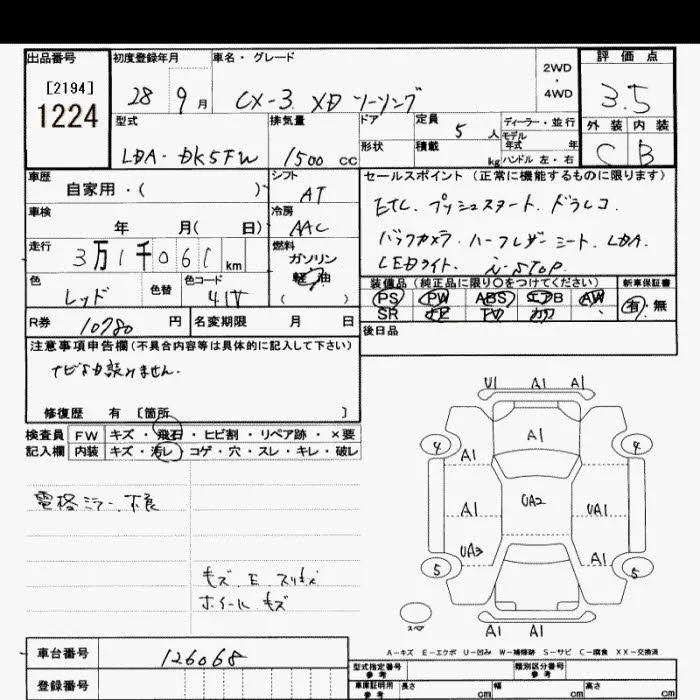 出品番号 初度登録年月 車名・グレード 2WD・4WD 評価点
[2194] 1224 28 9月 CX-3 XD ツーリング 3.5
外装 内装 C B
型式 排気量 ドア 定員 5人 ディーラー・並行
モデル年式 年
LDA-DK5FW 1500 cc 形状 積載 kg ハンドル 左・右
車歴 シフト セールスポイント(正常に機能するものに限ります)
自家用・( ) AT ETC. プッシュスタート. ドラレコ.
車検 年 月( 日) 冷房 AAC バックカメラ. ハーフレザーシート. LDA.
走行 3万1千061km 燃料 ガソリン 軽油 ( ) LEDライト. i-STOP.
色 レッド 色替 色コード 41V
装備品(純正品に限り○をつけてください) 新車保証書
PS PW ABS エアB AW 有・無
SR ナビ TV カワ
R券 10780円 名変期限 月 日 後日品
注意事項申告欄(不具合内容等は具体的に記入して下さい)
修復歴 有 [箇所 ]
検査員記入欄 FW キズ・飛石・ヒビ割・リペア跡・×要
内装 キズ・汚レ・コゲ・穴・スレ・キレ・破レ
電格ミラー不良
キズ E スリキズ
ホイールキズ
U1 A1 A1
4 A1 4
A1
A1 UA2 UA1
UA3 A1
5 5
スペア
A1 A1
A-キズ E-エクボ U-凹み W-補修跡 S-サビ C-腐食 XX-交換済
車台番号 126068
登録番号
型式指定番号 参考 類別区分番号 参考
車庫証明用 参考 長さ cm 幅 cm 高さ cm